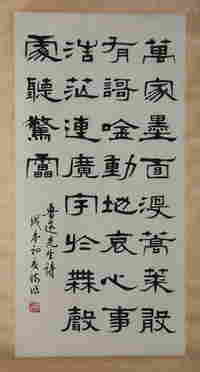 萬家墨面没蒿萊敢
有謌唫動地哀心事
浩茫連廣宇於無聲
處聽驚雷
魯迅先生詩